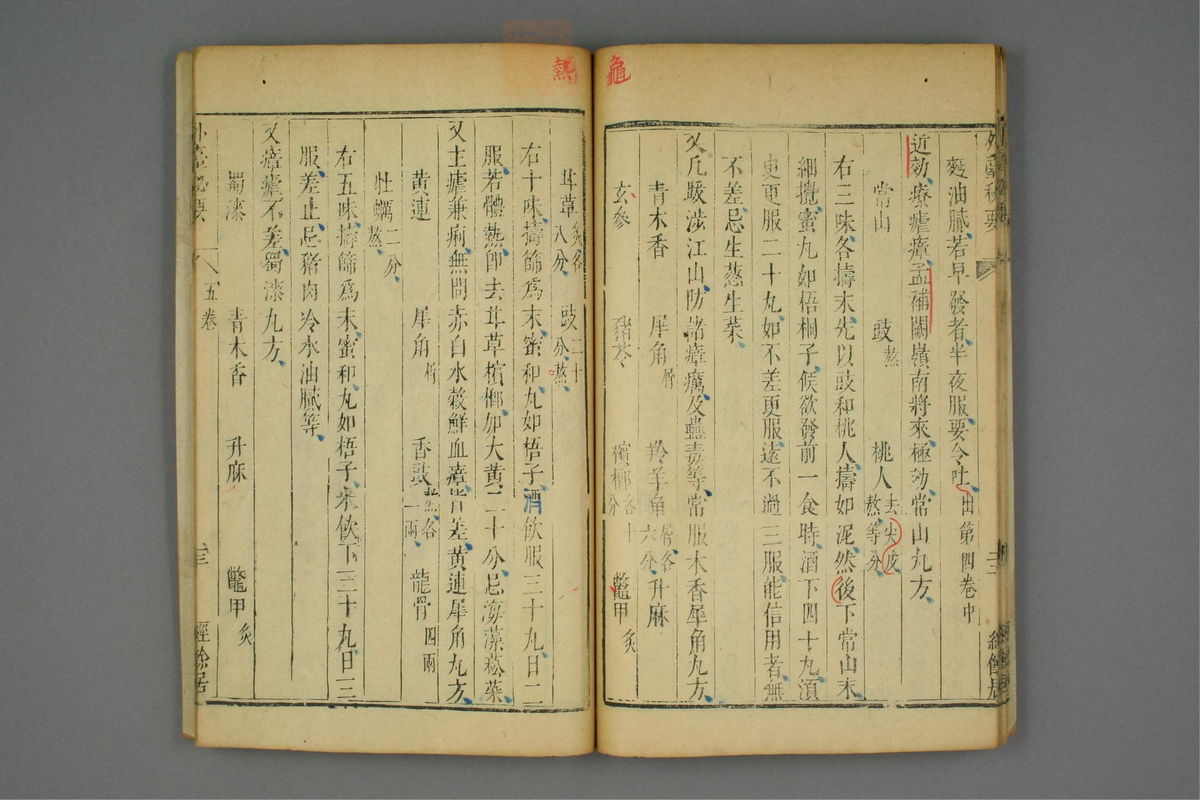 龜
外臺秘要
麪油膩若早發者半夜服要令吐出第四卷中
近効療瘧瘴孟補闕嶺南將來極効常山丸方
常山 豉熬 桃人去尖皮熬等分
右三味各擣末先以豉和桃人擣如泥然後下常山末
細攪蜜丸如梧桐子候欲發前一食時酒下四十丸湏
更服二十丸如不差更服遠不過三服能信用者無
不差忌生葱生菜
又凡跋涉江山防諸瘴癘及蠱毒等常服木香犀角丸方
青木香 犀角屑 羚羊角屑各六分 升麻
玄參 猪苓 檳榔各十分 鼈甲炙
熱
甘草炙各八分 豉二十分熬
右十味擣篩爲末蜜和丸如梧子酒飲服三十丸日二
服若體熱卽去甘草檳榔加大黃二十分忌海藻菘菜
又主瘧兼痢無問赤白水榖鮮血瘴皆差黃連犀角丸方
黃連 犀角屑 香豉熬各一兩 龍骨四兩
牡蠣二分熬
右五味擣篩爲末蜜和丸如梧子米飲下三十丸日三
服差止忌猪肉冷水油膩等
又瘴瘧不差蜀漆丸方
蜀漆 青木香 升麻 鼈甲炙
外臺秘要 五卷 三 經餘居